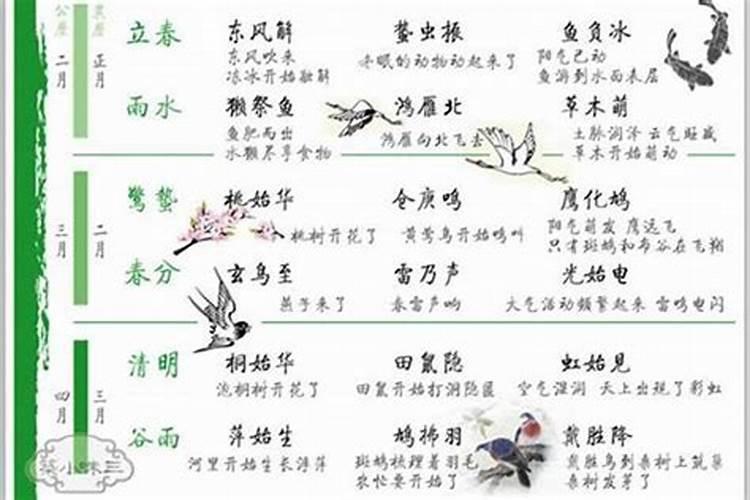 公历 农历
二月 正月
立春 东风解 蛰虫振 鱼负冰
东风吹来 冬眠的动物动起来了 阳气已动
冻冰开始融解 鱼游到水面表层
雨水 獭祭鱼 鸿雁北 草木萌
鱼肥而出 鸿雁向北飞去 土脉润泽 云气旺盛
水獭尽享食物 草木开始萌动
三月 二月
驚蟄 桃始华 仓庚鸣 鹰化鸠
桃树开花了 黄莺鸟开始鸣叫 阳气萌发 鹰远飞
只有斑鸠和布谷在飞翔
春分 玄鸟至 雷乃声 光始电
燕子来了 春雷声响 大气活动频繁起来 雷鸣电闪
四月 三月
清明 桐始华 田鼠隐 虹始见
泡桐树开花了 田鼠开始打洞隐匿 空气湿润 天上出现了彩虹
谷雨 萍始生 鸠拂羽 戴胜降
河里开始生长浮萍 斑鸠梳理着羽毛 戴胜鸟到桑树上筑巢
农忙要开始了 桑树发芽了